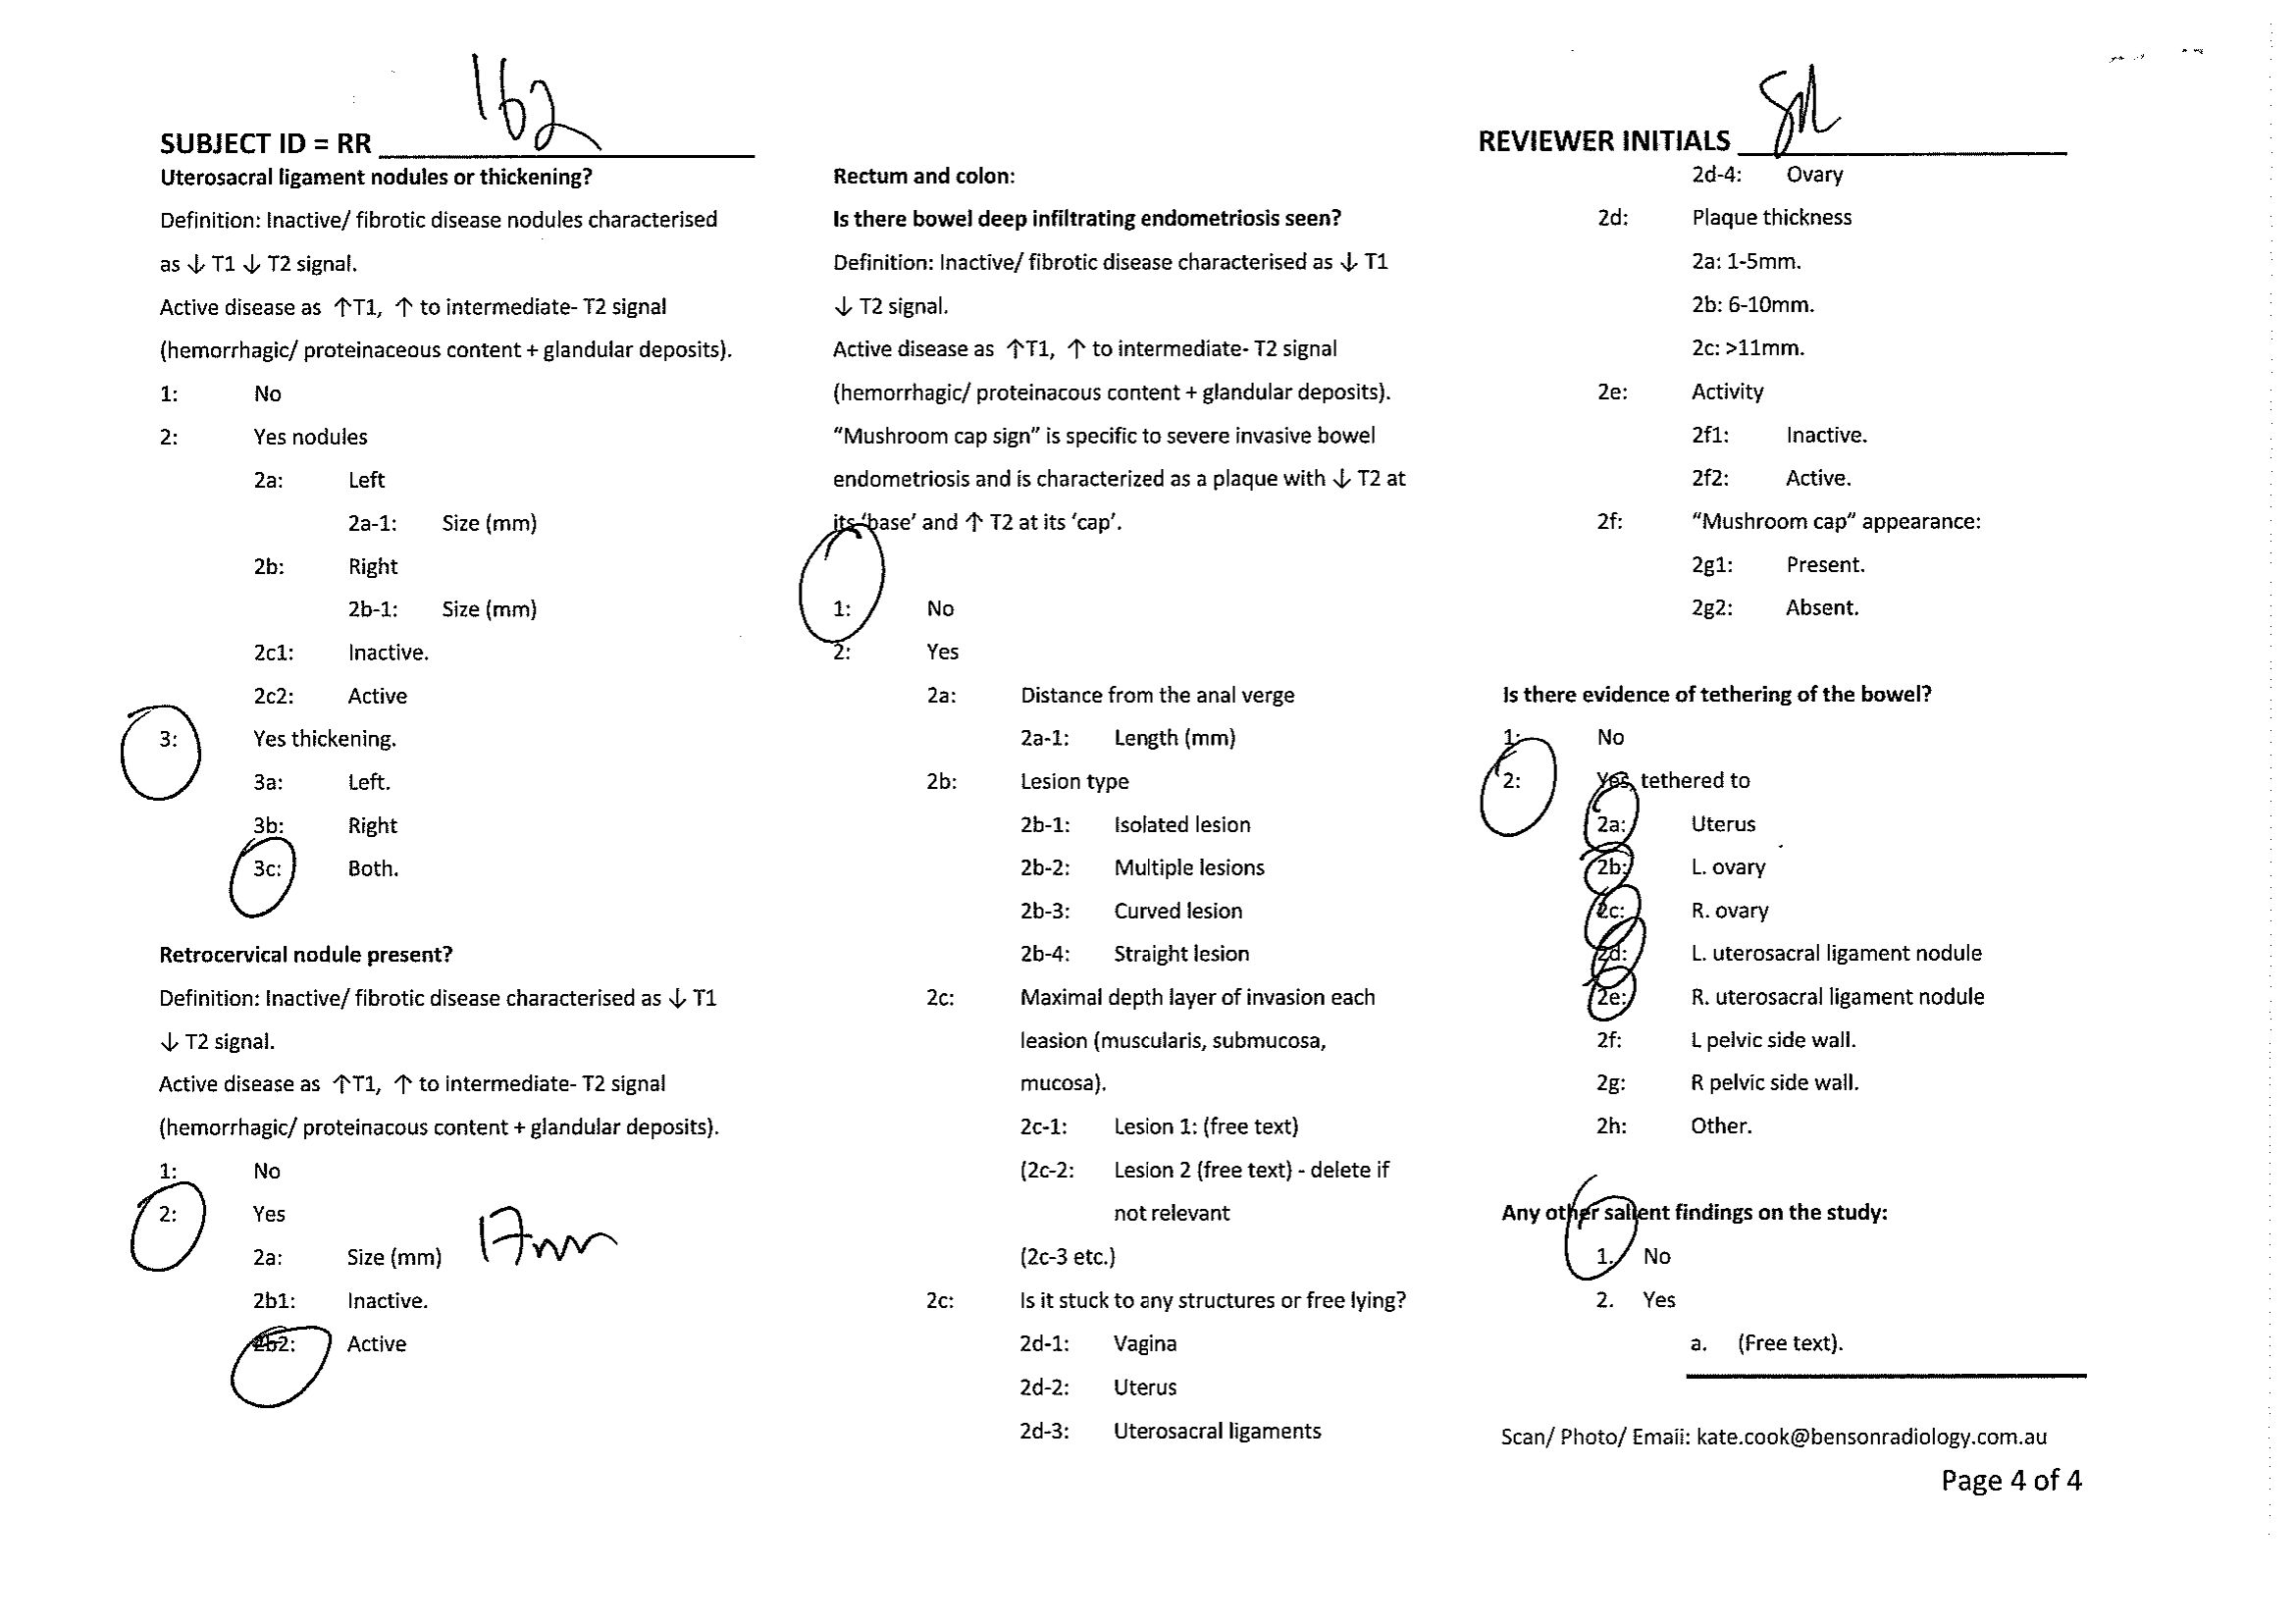 SUBJECT ID = RR 162
Uterosacral ligament nodules or thickening?
Definition: Inactive/ fibrotic disease nodules characterised
as ↓ T1 ↓ T2 signal.
Active disease as ↑T1, ↑ to intermediate- T2 signal
(hemorrhagic/ proteinaceous content + glandular deposits).
1: No
2: Yes nodules
2a: Left
2a-1: Size (mm)
2b: Right
2b-1: Size (mm)
2c1: Inactive.
2c2: Active
3: Yes thickening.
3a: Left.
3b: Right
3c: Both.
Retrocervical nodule present?
Definition: Inactive/ fibrotic disease characterised as ↓ T1
↓ T2 signal.
Active disease as ↑T1, ↑ to intermediate- T2 signal
(hemorrhagic/ proteinacous content + glandular deposits).
1: No
2: Yes
2a: Size (mm) 17mm
2b1: Inactive.
2b2: Active
Rectum and colon:
Is there bowel deep infiltrating endometriosis seen?
Definition: Inactive/ fibrotic disease characterised as ↓ T1
↓ T2 signal.
Active disease as ↑T1, ↑ to intermediate- T2 signal
(hemorrhagic/ proteinacous content + glandular deposits).
“Mushroom cap sign” is specific to severe invasive bowel
endometriosis and is characterized as a plaque with ↓ T2 at
its ‘base’ and ↑ T2 at its ‘cap’.
1: No
2: Yes
2a: Distance from the anal verge
2a-1: Length (mm)
2b: Lesion type
2b-1: Isolated lesion
2b-2: Multiple lesions
2b-3: Curved lesion
2b-4: Straight lesion
2c: Maximal depth layer of invasion each
leasion (muscularis, submucosa,
mucosa).
2c-1: Lesion 1: (free text)
(2c-2: Lesion 2 (free text) - delete if
not relevant
(2c-3 etc.)
2c: Is it stuck to any structures or free lying?
2d-1: Vagina
2d-2: Uterus
2d-3: Uterosacral ligaments
REVIEWER INITIALS
2d-4: Ovary
2d: Plaque thickness
2a: 1-5mm.
2b: 6-10mm.
2c: >11mm.
2e: Activity
2f1: Inactive.
2f2: Active.
2f: “Mushroom cap” appearance:
2g1: Present.
2g2: Absent.
Is there evidence of tethering of the bowel?
1: No
2: Yes, tethered to
2a: Uterus
2b: L. ovary
2c: R. ovary
2d: L. uterosacral ligament nodule
2e: R. uterosacral ligament nodule
2f: L pelvic side wall.
2g: R pelvic side wall.
2h: Other.
Any other salient findings on the study:
1. No
2. Yes
a. (Free text).
Scan/ Photo/ Email: kate.cook@bensonradiology.com.au
Page 4 of 4